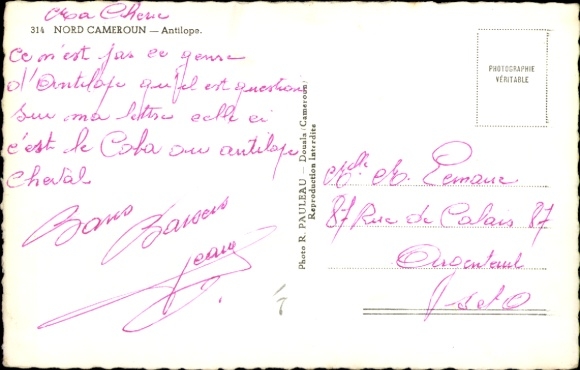 Ma Cherie
314 NORD CAMEROUN — Antilope.
Ce n'est pas ce genre
d'Antilope qu'il est question
sur ma lettre celle ci
c'est le Coba ou antilope
cheval
Bons Baisers
Jean
Photo R. PAULEAU — Douala (Cameroun)
Reproduction interdite
PHOTOGRAPHIE
VÉRITABLE
Melle M. Lemaire
87 Rue de Calais 87
Argenteuil
S et O